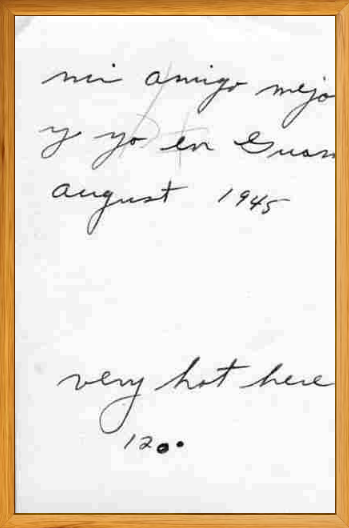 mi amigo mejo
y yo en Guam
august 1945
very hot here
120°